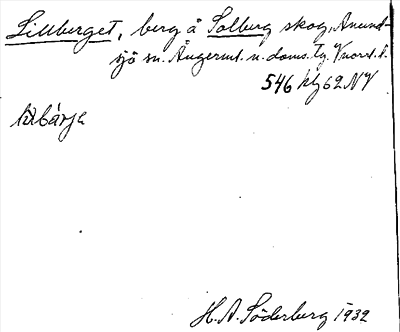 Lillberget, berg å Solberg skog, Anund-
sjö sn. Ångerml. n. doms. tg. Vnorrl. l.
546 hlj 62 NV
H. A. Söderberg 1932